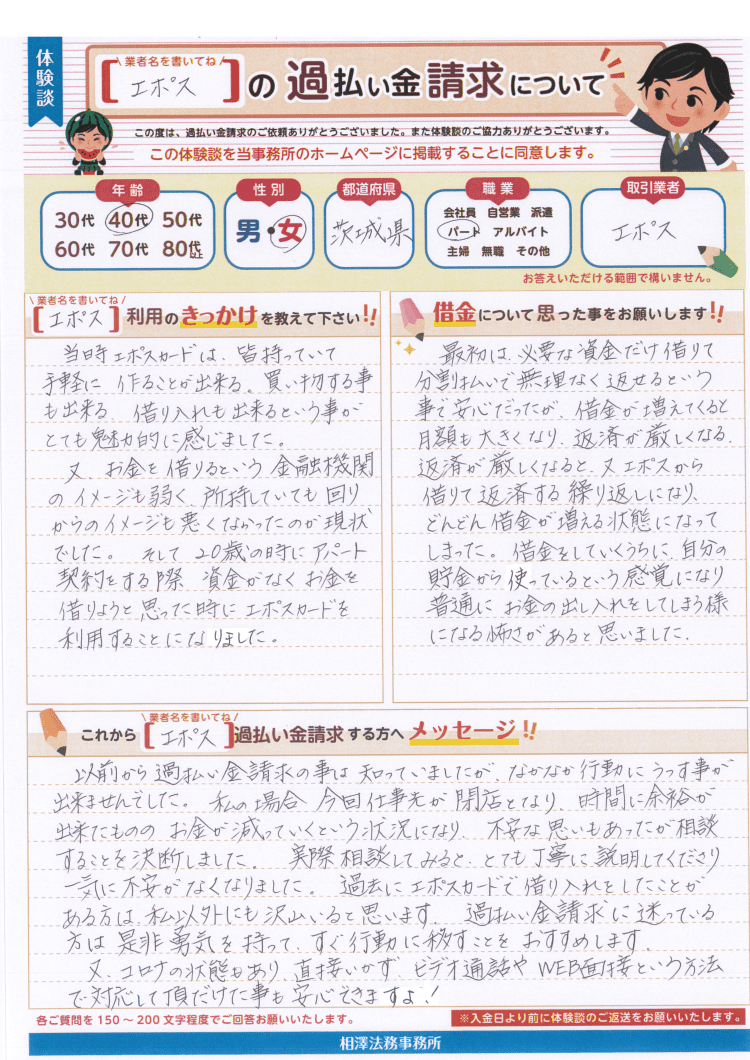 体験談
\ 業者名を書いてね /
[エポス]の過払い金請求について
この度は、過払い金請求のご依頼ありがとうございました。また体験談のご協力ありがとうございます。
この体験談を当事務所のホームページに掲載することに同意します。
年齢
30代 40代 50代
60代 70代 80代以上
性別
男・女
都道府県
茨城県
職業
会社員 自営業 派遣
パート アルバイト
主婦 無職 その他
取引業者
エポス
お答えいただける範囲で構いません。
\ 業者名を書いてね /
[エポス]利用のきっかけを教えて下さい!!
当時エポスカードは、皆持っていて
手軽に 作ることが出来る。買い物する事
も出来る、借り入れも出来るという事が
とても魅力的に感じました。
又、お金を借りるという 金融機関
のイメージも弱く、所持していても回り
からのイメージも悪くなかったのが現状
でした。 そして 20歳の時にアパート
契約をする際 資金がなくお金を
借りようと思った時にエポスカードを
利用することになりました。
借金について思った事をお願いします!!
最初は、必要な資金だけ借りて
分割払いで無理なく返せるという
事で安心だったが、借金が増えてくると
月額も大きくなり、返済が厳しくなる。
返済が厳しくなると、又エポスから
借りて返済する繰り返しになり、
どんどん借金が増える状態になって
しまった。借金をしていくうちに、自分の
貯金から使っているという感覚になり
普通に お金の出し入れをしてしまう様
になる怖さがあると思いました。
\ 業者名を書いてね /
これから[エポス]過払い金請求する方へメッセージ!!
以前から過払い金請求の事は知っていましたが、なかなか行動にうつす事が
出来ませんでした。 私の場合 今回仕事先が閉店となり、時間に余裕が
出来たものの お金が減っていくという状況になり、不安な思いもあったが相談
することを決断しました。 実際相談してみると、とても丁寧に説明してくださり
一気に不安がなくなりました。 過去にエポスカードで借り入れをしたことが
ある方は、私以外にも沢山いると思います。 過払い金請求に迷っている
方は是非勇気を持って、すぐ行動に移すことをおすすめします。
又、コロナの状態もあり、直接いかず、ビデオ通話やWEB面接という方法
で対応して頂だけた事も安心できますよ!
各ご質問を150〜200文字程度でご回答お願いいたします。
※入金日より前に体験談のご返送をお願いいたします。
相澤法務事務所